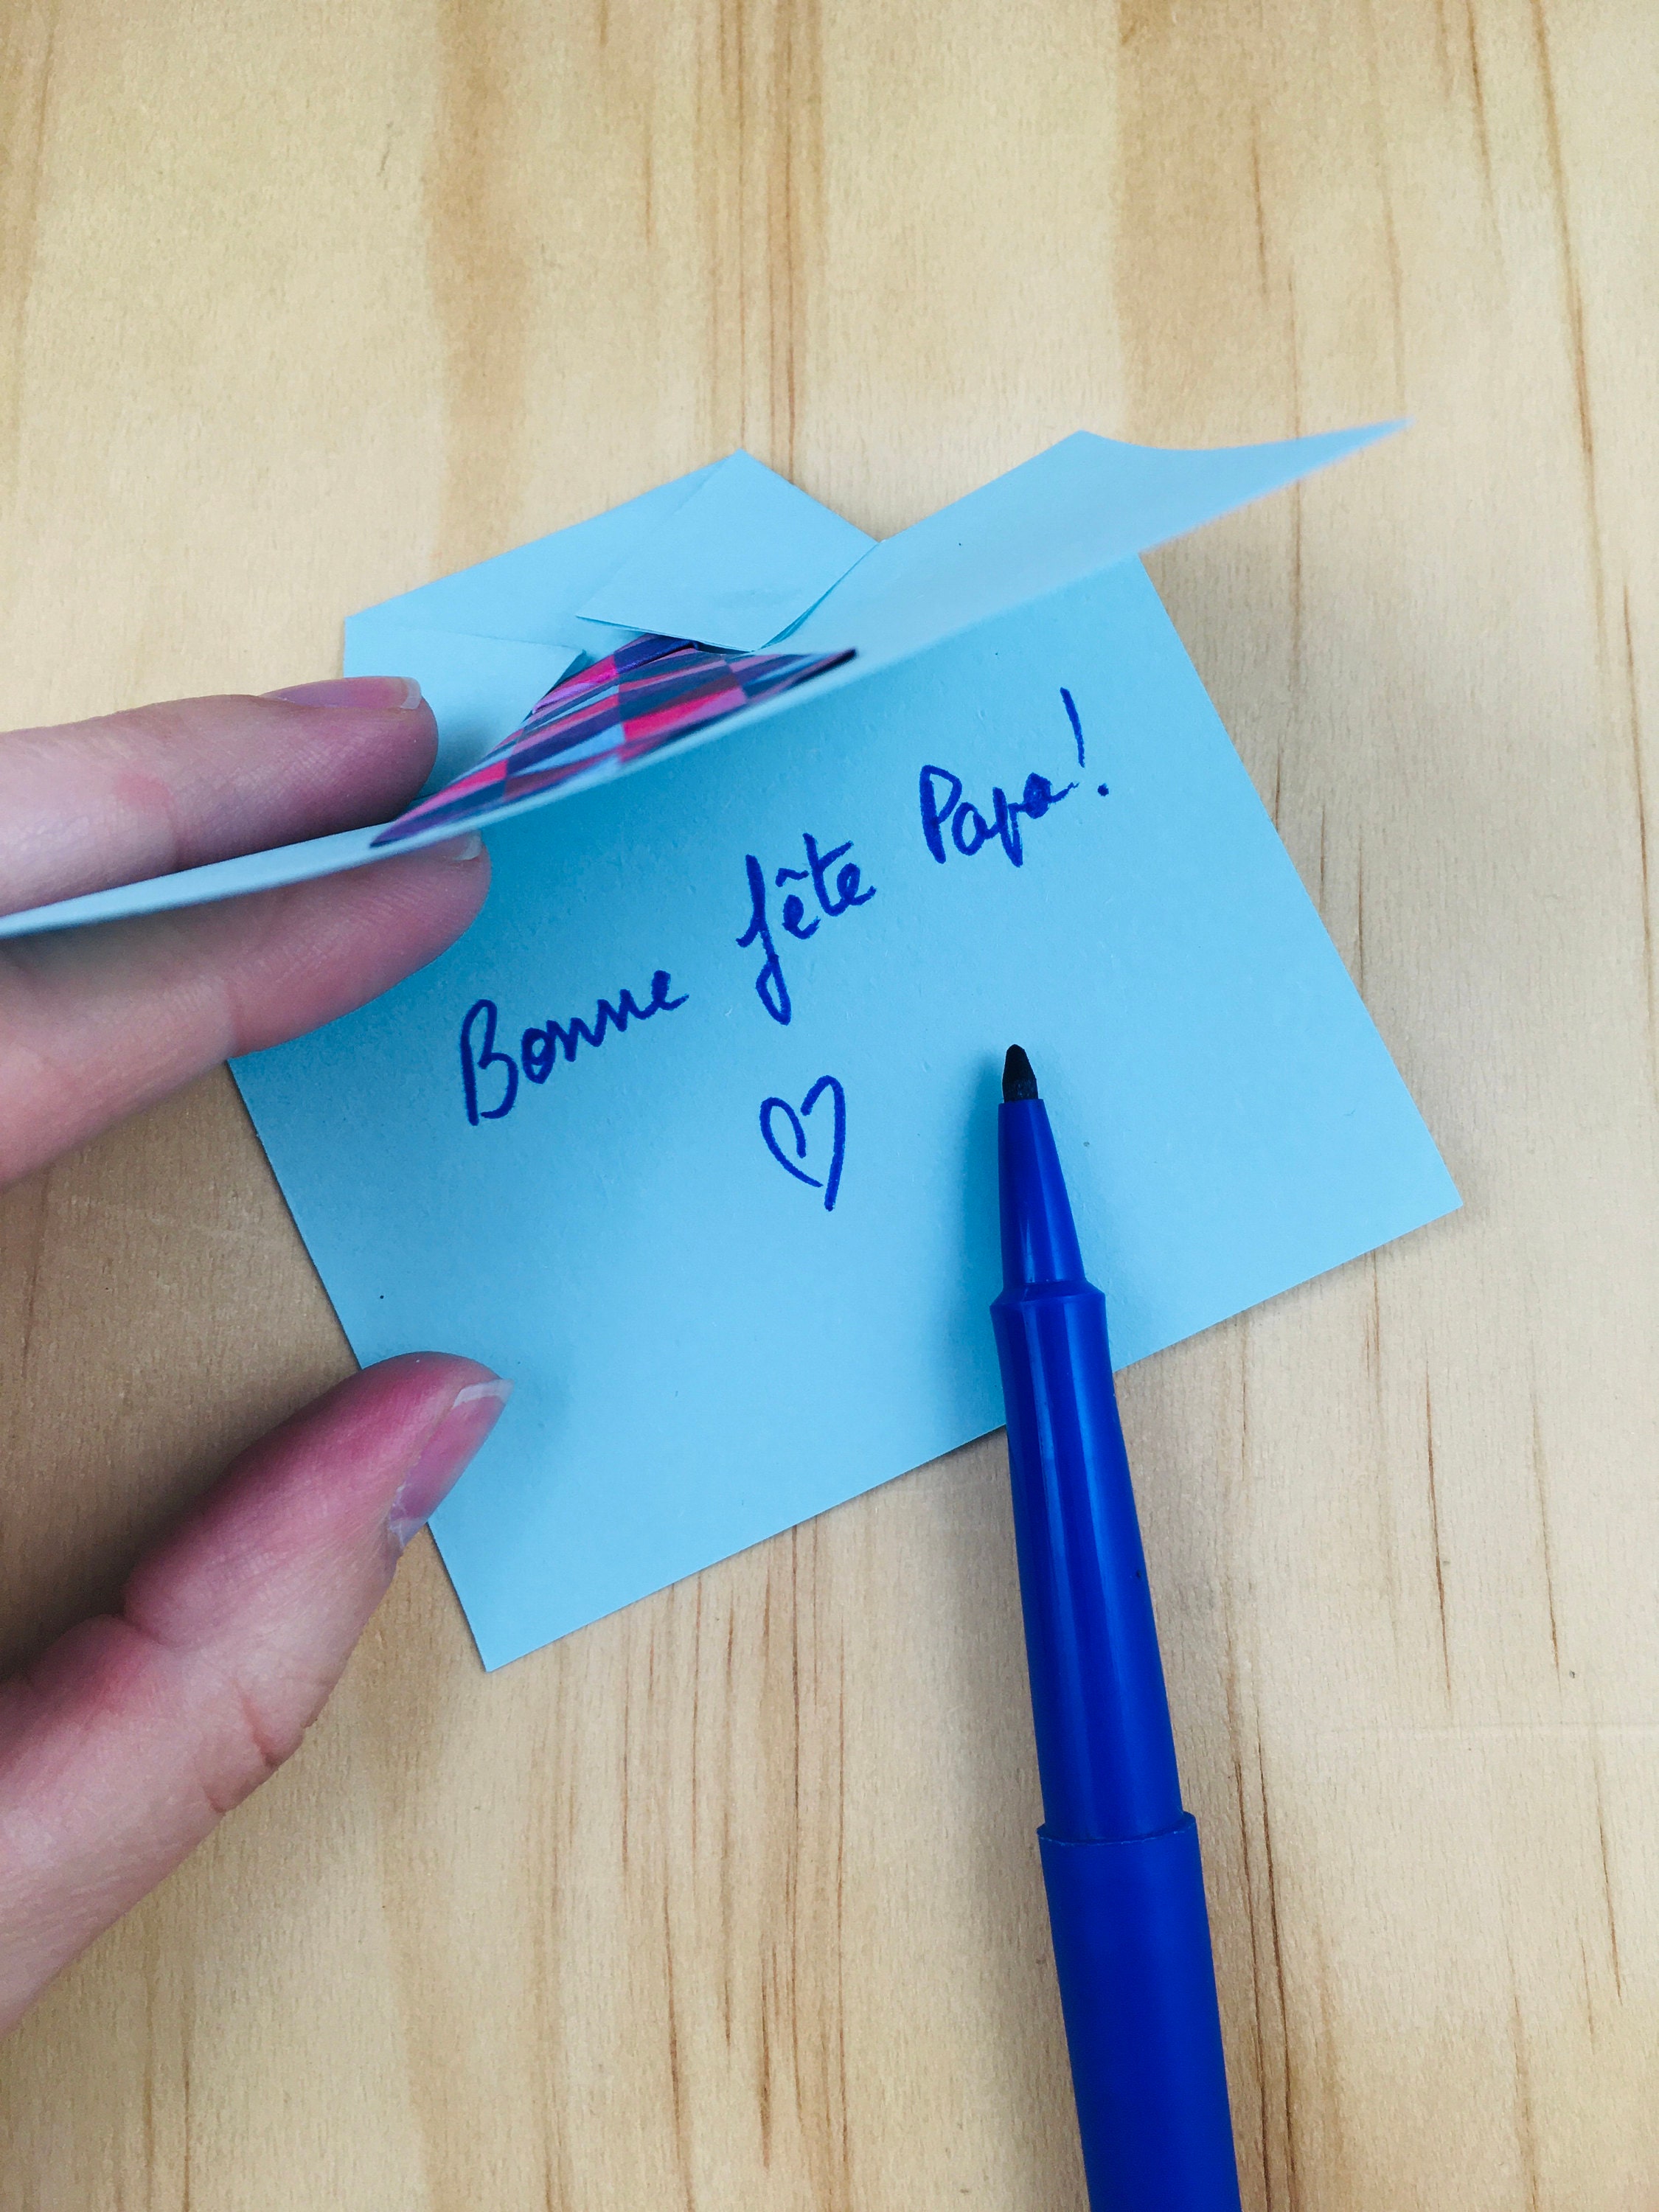 Bonne fête Papa!
♡